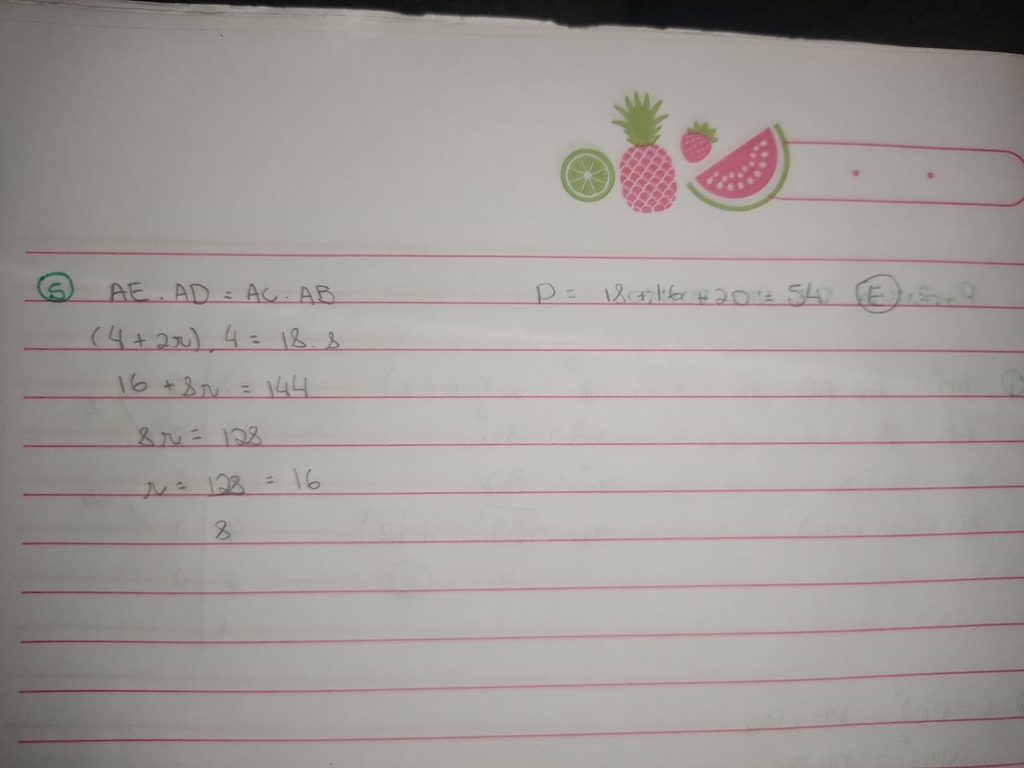 5 AE . AD = AC . AB
(4 + 2r) . 4 = 18 . 8
16 + 8r = 144
8r = 128
r = 128 = 16
8
P = 18 + 16 + 20 = 54 E